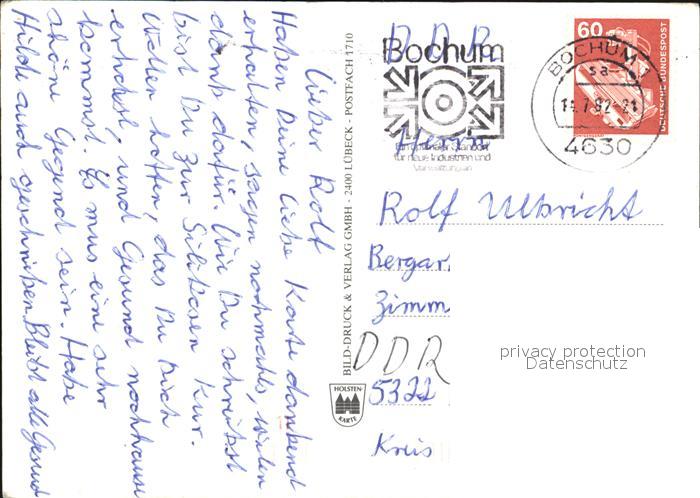 Lieber Rolf
Haben Deine liebe Karte dankend
erhalten, sagen nochmahls, vielen
dank dafür. Wie Du schreibst
bist Du zur Silikosen Kur.
Wollen hoffen, das Du Dich
erholst, und Gesund nachhause
kommst. Es mus eine sehr
schöne Gegend sein. Habe
Hilde auch geschrieben. Bleibt alle Gesund
BILD-DRUCK & VERLAG GMBH - 2400 LÜBECK - POSTFACH 1710
HOLSTEN-
KARTE
DDR
Bochum
für neue Industrien und
60
DEUTSCHE BUNDESPOST
BOCHUM 1
sa
.7.82-21
4630
Herrn
Rolf Ulbricht
Bergar
Zimm
DDR
5322
Kreis
privacy protection
Datenschutz